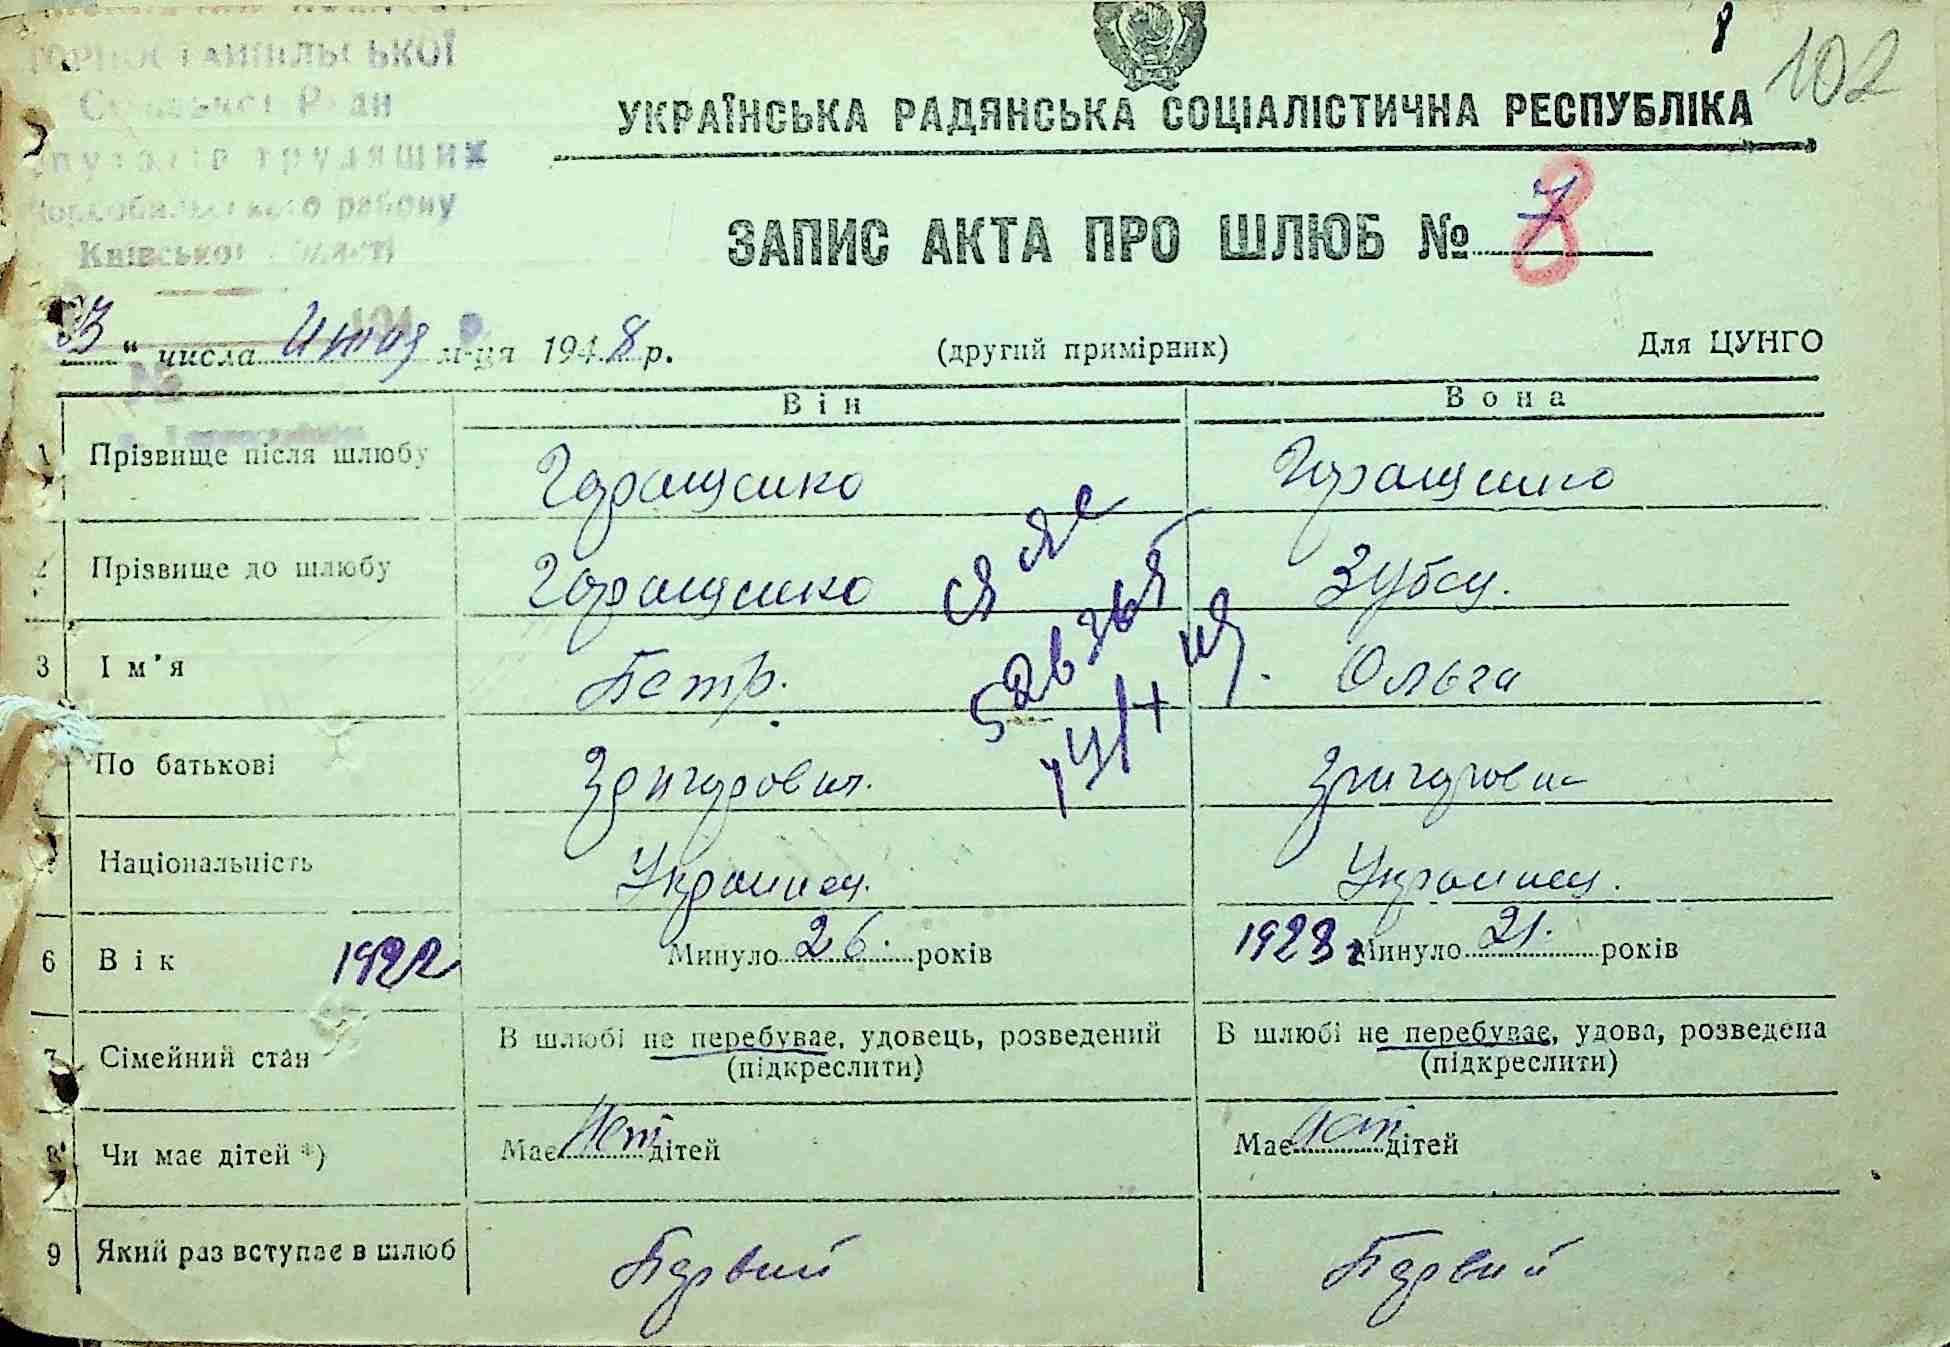 8
102
СЬКОЇ
Ради
трудящих
району
Київської області
УКРАЇНСЬКА РАДЯНСЬКА СОЦІАЛІСТИЧНА РЕСПУБЛІКА
ЗАПИС АКТА ПРО ШЛЮБ № 7 8
23 " числа Июля м-ця 1948 р.
(другий примірник)
Для ЦУНГО
Він Вона
1 Прізвище після шлюбу Геращенко Геращенко
2 Прізвище до шлюбу Геращенко Зубец.
3 Ім'я Петр. Ольга
По батькові Григорович. Григоровн
Національність Украинец. Украинец.
6 Вік 1922 Минуло 26. років 1928 г Минуло 21. років
7 Сімейний стан В шлюбі не перебуває, удовець, розведений (підкреслити) В шлюбі не перебуває, удова, розведена (підкреслити)
8 Чи має дітей *) Має нет дітей Має нет дітей
9 Який раз вступає в шлюб Первий Первий